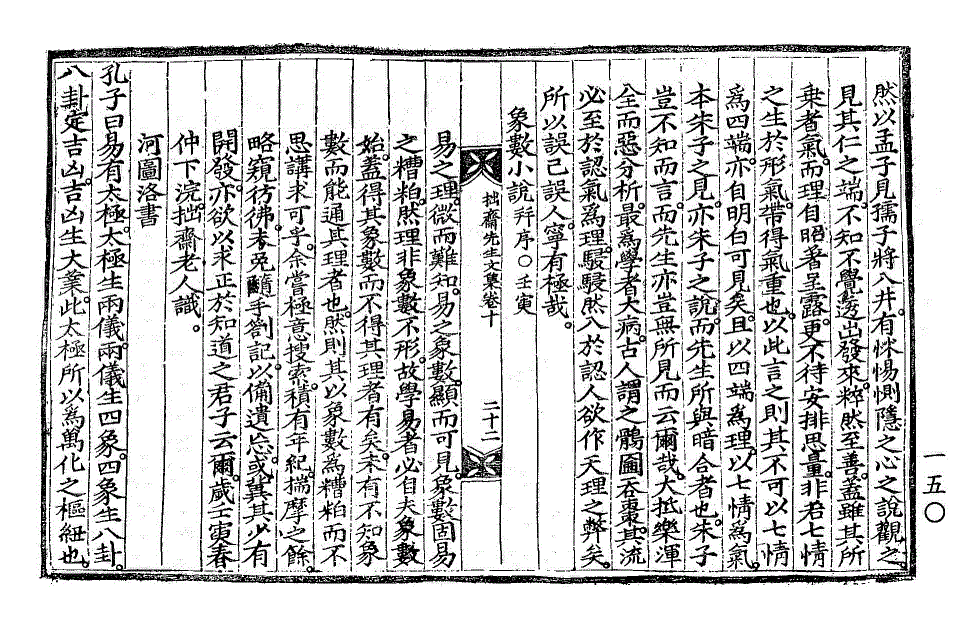 然以孟子見孺子將入井。有怵惕惻隱之心之說觀之。
見其仁之端。不知不覺。發出發來。粹然至善。蓋雖其所
乘者氣。而理自昭著呈露。更不待安排思量。非若七情
之生於形氣。帶得氣重也。以此言之則其不可以七情
爲四端。亦自明白可見矣。且以四端爲理。以七情爲氣。
本朱子之見。亦朱子之說。而先生所與暗合者也。朱子
豈不知而言。而先生亦豈無所見而云爾哉。大抵樂渾
全而惡分析。最爲學者大病。古人謂之鶻圇呑棗。其流
必至於認氣爲理。駸駸然入於認人欲作天理之弊矣。
所以誤己誤人。寧有極哉。
象數小說 幷序○壬寅
拙齋先生文集卷十
二十二
易之理。微而難知。易之象數。顯而可見。象數固易
之糟粕。然理非象數不形。故學易者必自夫象數
始。蓋得其象數而不得其理者有矣。未有不知象
數而能通其理者也。然則其以象數爲糟粕而不
思講求可乎。余嘗極意搜索。積有年紀。揣摩之餘。
略窺彷彿。未免隨手劄記。以備遺忘。或冀其少有
開發。亦欲以求正於知道之君子云爾。歲壬寅春
仲下浣。拙齋老人識。
河圖洛書
孔子曰易有太極。太極生兩儀。兩儀生四象。四象生八卦。
八卦定吉凶。吉凶生大業。此太極所以爲萬化之樞紐也。
一五〇